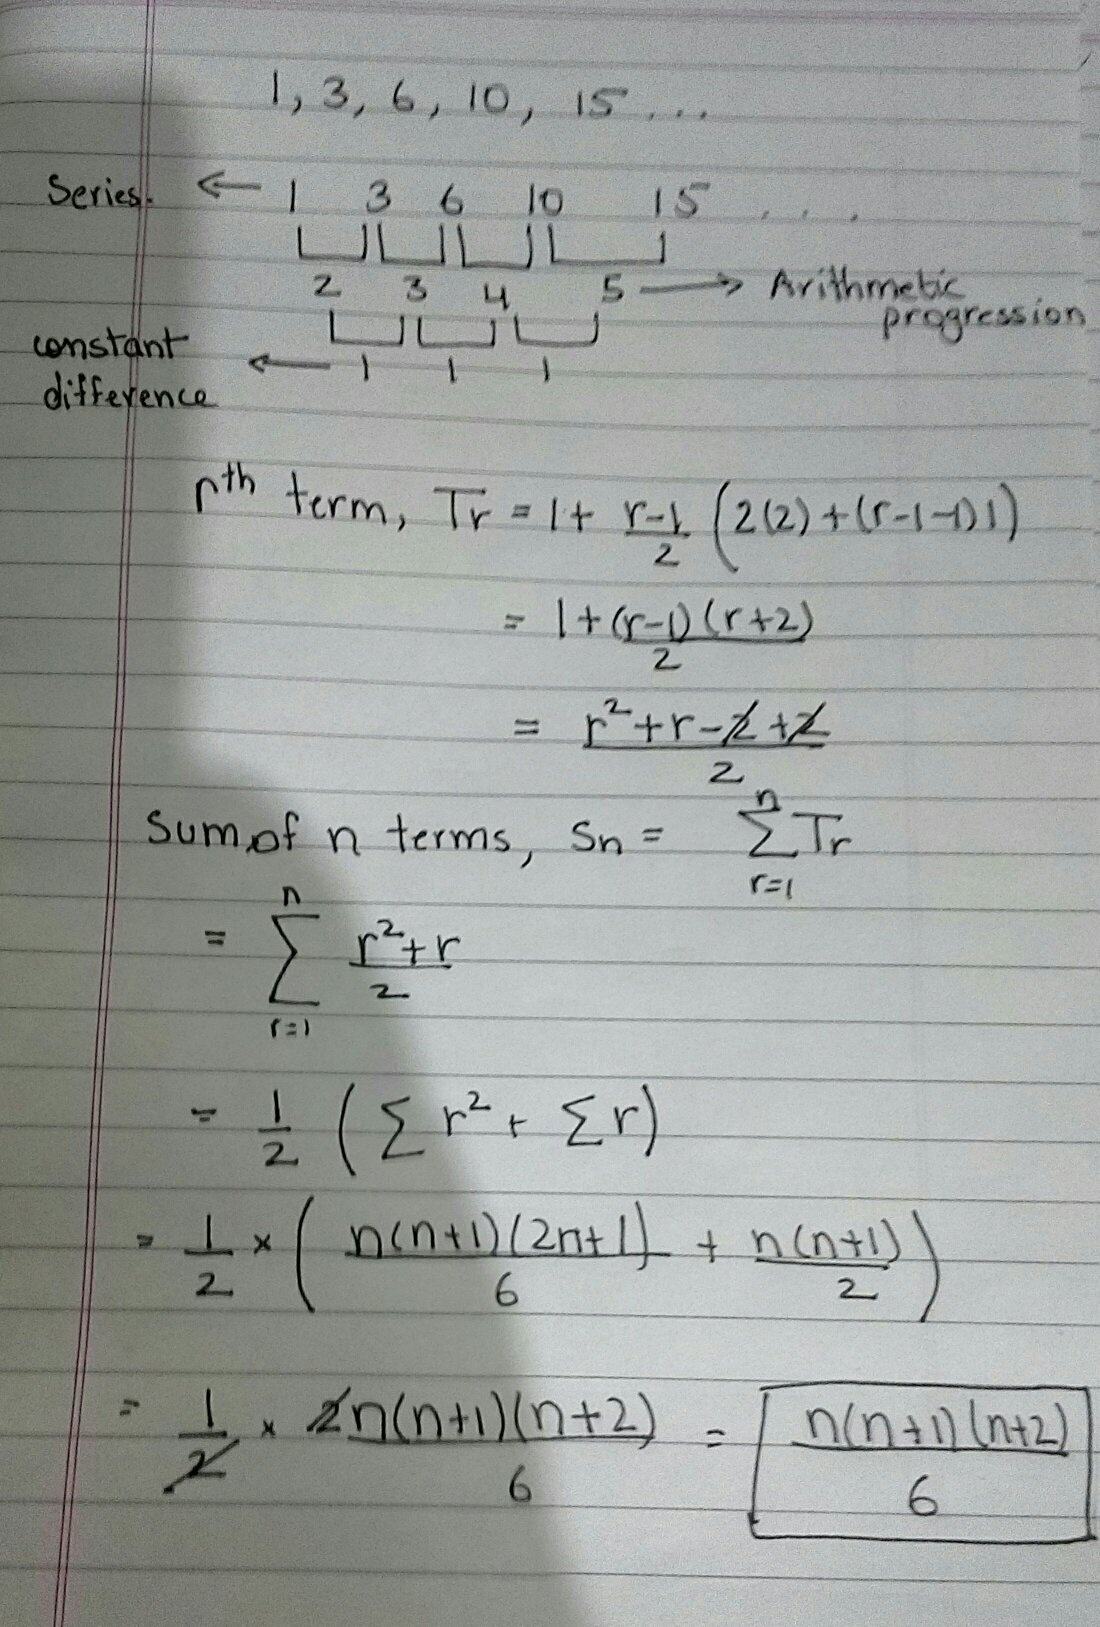 1, 3, 6, 10, 15 ...
Series. ← 1 3 6 10 15 ....
2 3 4 5 → Arithmetic progression
constant difference ← 1 1 1
rth term, Tr = 1 + r-1/2 (2(2) + (r-1-1)1)
= 1 + (r-1)(r+2)/2
= r²+r-2+2/2
Sum of n terms, Sn = n∑r=1 Tr
= n∑r=1 r²+r/2
= 1/2 (∑r² + ∑r)
= 1/2 × (n(n+1)(2n+1)/6 + n(n+1)/2)
= 1/2 × 2n(n+1)(n+2)/6 = n(n+1)(n+2)/6